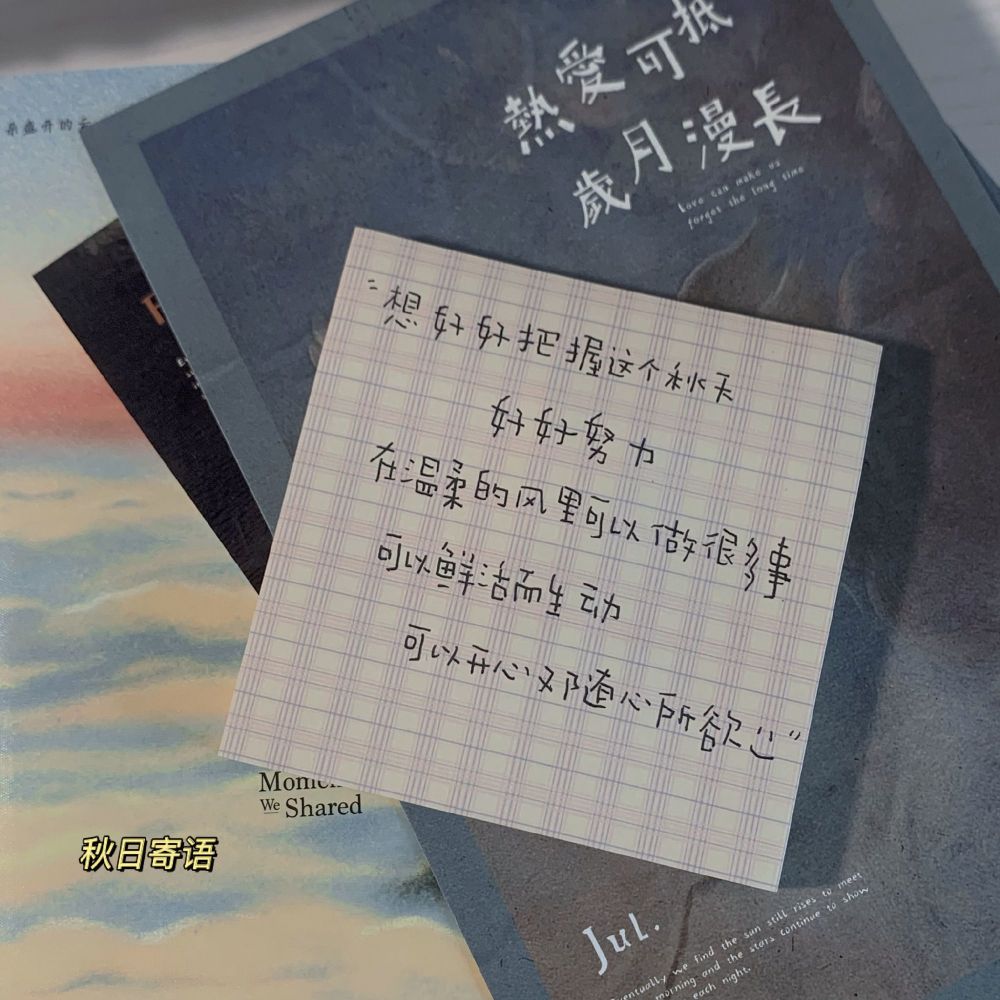 朵盛开的云
熱愛可抵
歲月漫長
Love can make us
forget the long time
"想好好把握这个秋天
好好努力
在温柔的风里可以做很多事
可以鲜活而生动
可以开心又随心所欲"
We Shared
秋日寄语
Jul.
Eventually we find the sun still rises to meet
morning and the stars continue to show
each night.